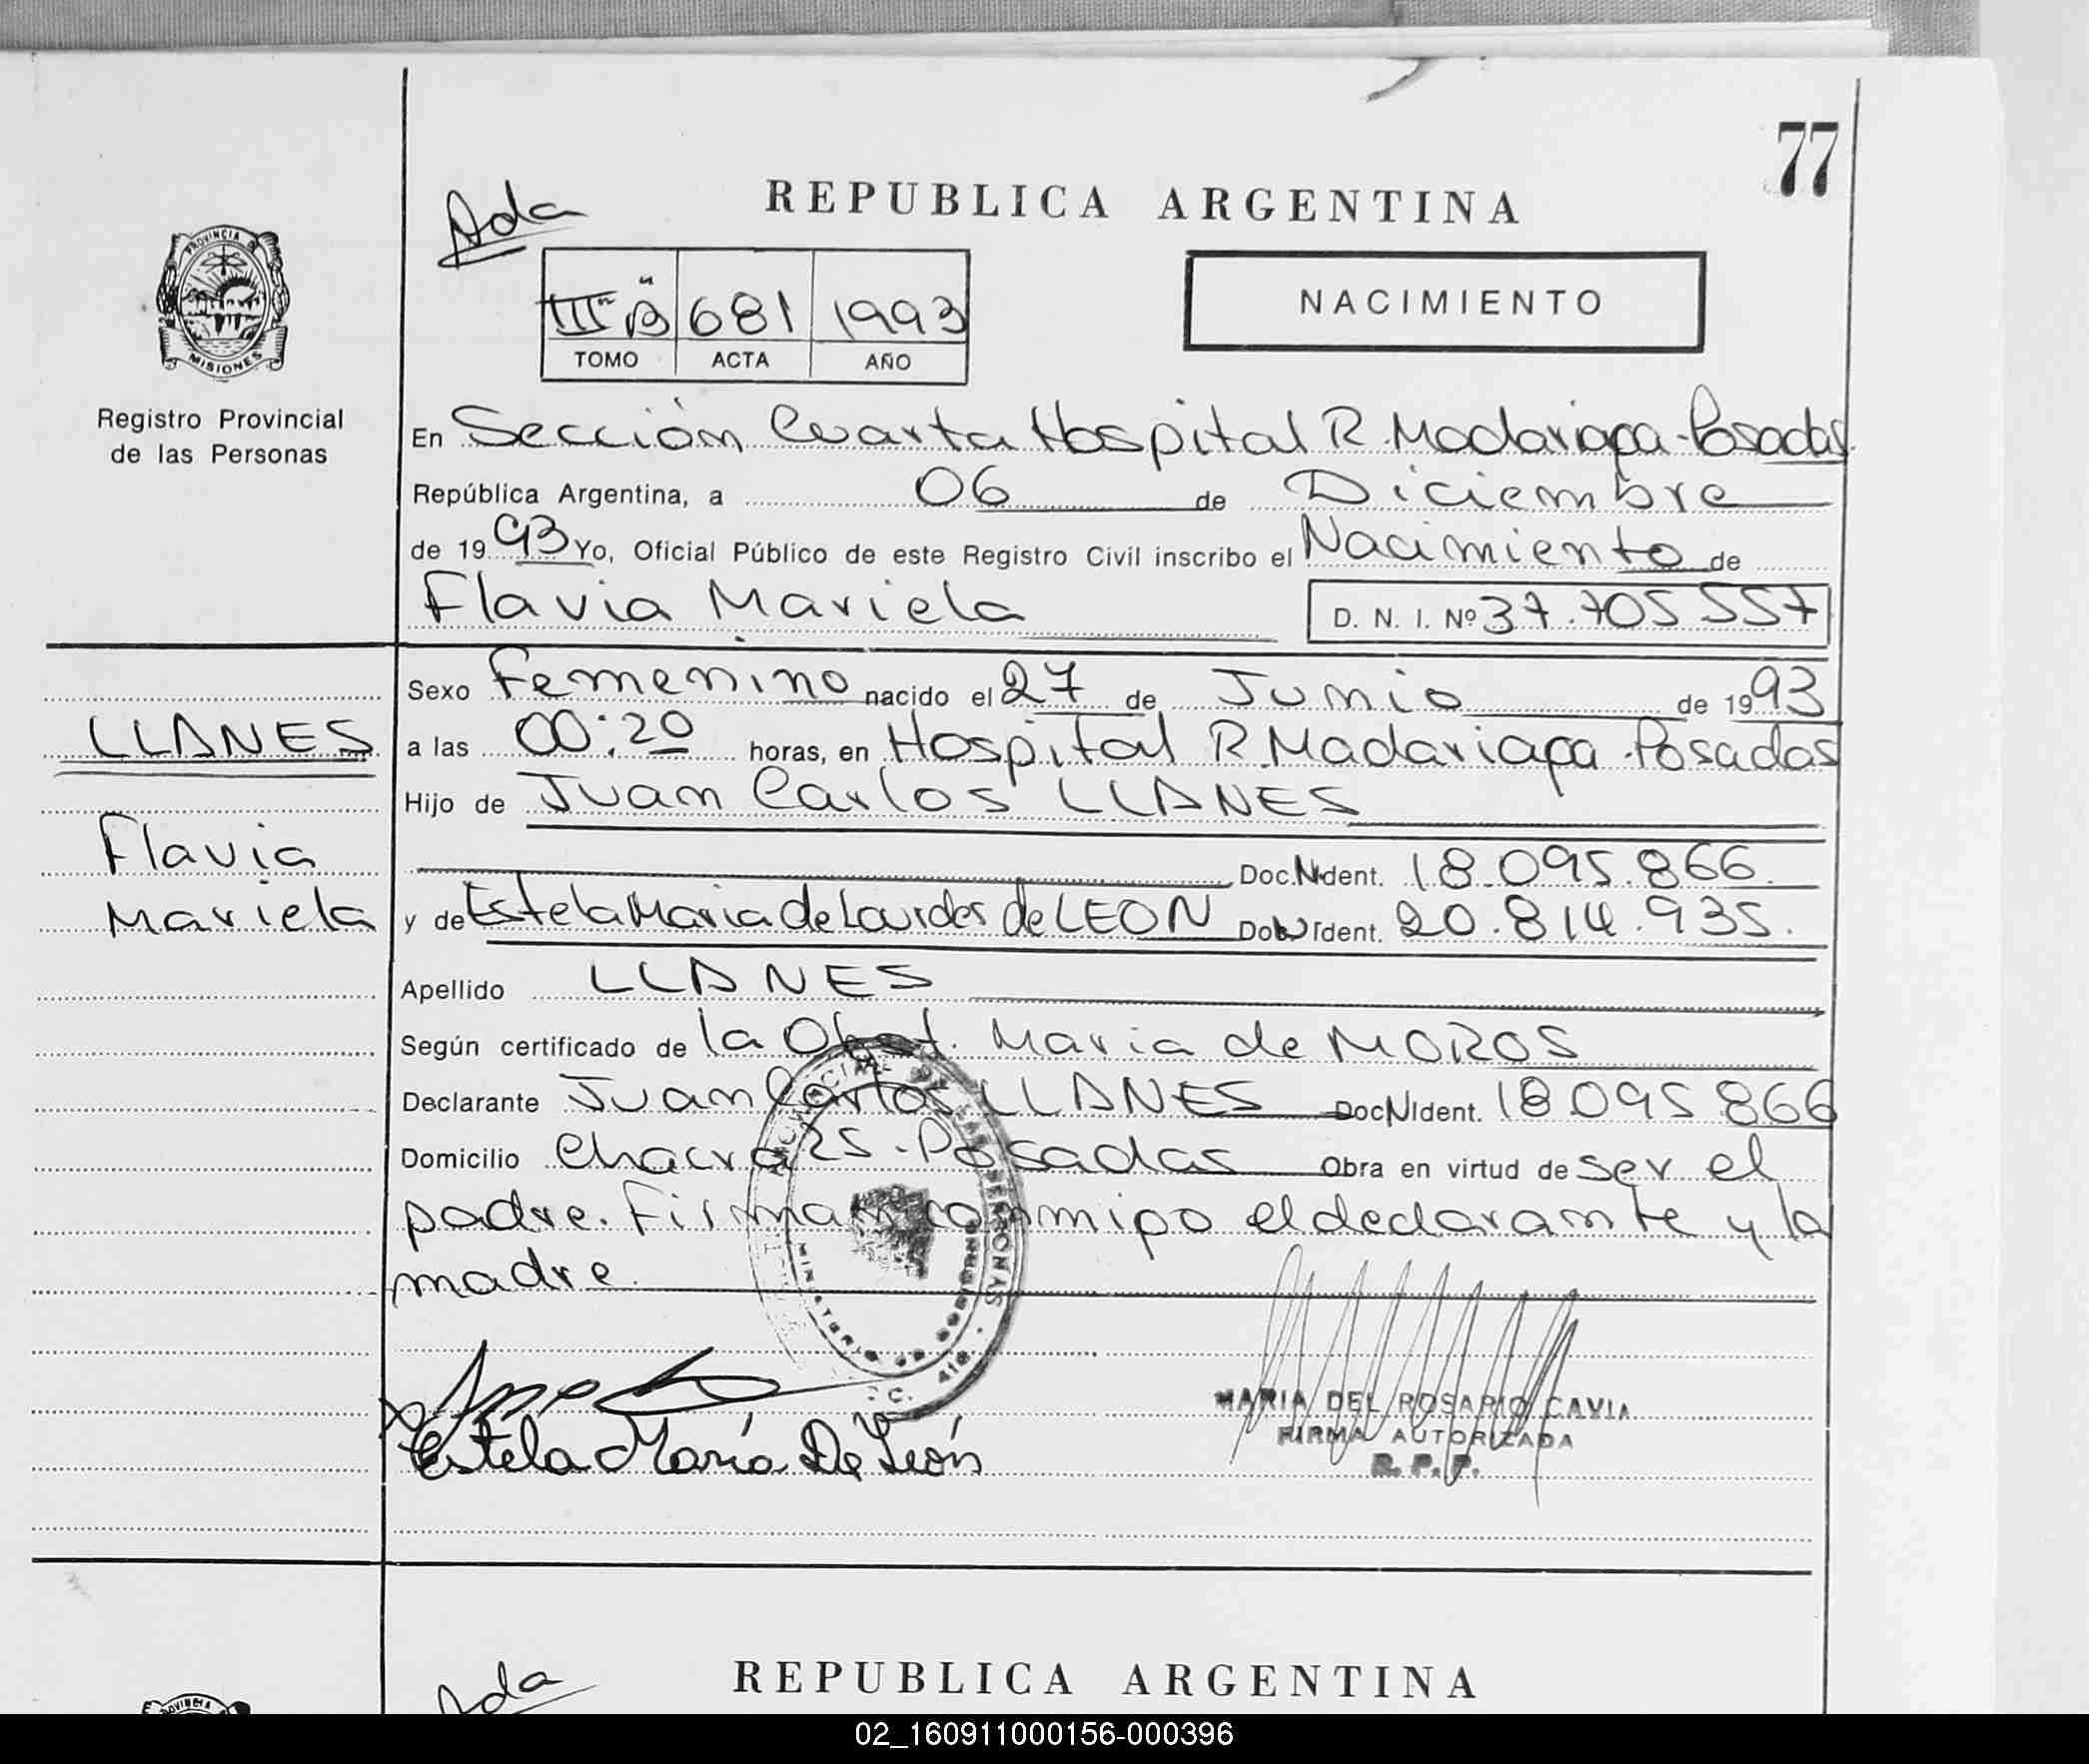 77
Ada
REPUBLICA ARGENTINA
PROVINCIA DE
MISIONES
III "B" 681 1993
TOMO ACTA AÑO
NACIMIENTO
Registro Provincial
de las Personas
En Sección Cuarta Hospital R. Madariaga - Posadas
República Argentina, a 06 de Diciembre
de 1993 Yo, Oficial Público de este Registro Civil inscribo el Nacimiento de
Flavia Mariela D. N. I. Nº 37.705.557
Sexo Femenino nacido el 27 de Junio de 1993
LLANES
a las 00:20 horas, en Hospital R. Madariaga - Posadas
Hijo de Juan Carlos LLANES
Flavia
Doc. N Ident. 18.095.866
Mariela
y de Estela Maria de Lourdes de LEON Doc. N Ident. 20.814.935.
Apellido LLANES
Según certificado de la Obst. Maria de MOROS
Declarante Juan Carlos LLANES Doc N Ident. 18.095.866
Domicilio Chacra 25 - Posadas Obra en virtud de ser el
padre. Firman conmigo el declarante y la
madre.
Estela María De León
MARIA DEL ROSARIO CAVIA
FIRMA AUTORIZADA
R. P. P.
MINISTERIO DE GOBIERNO
Ada
REPUBLICA ARGENTINA
02_160911000156-000396